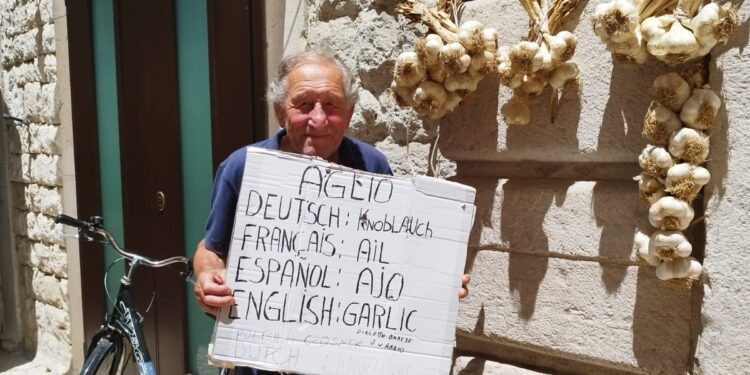 AGLIO
DEUTSCH: KNOBLAUCH
FRANÇAIS: AIL
ESPAÑOL: AJO
ENGLISH: GARLIC
DIALETTO BARESE
DUTCH